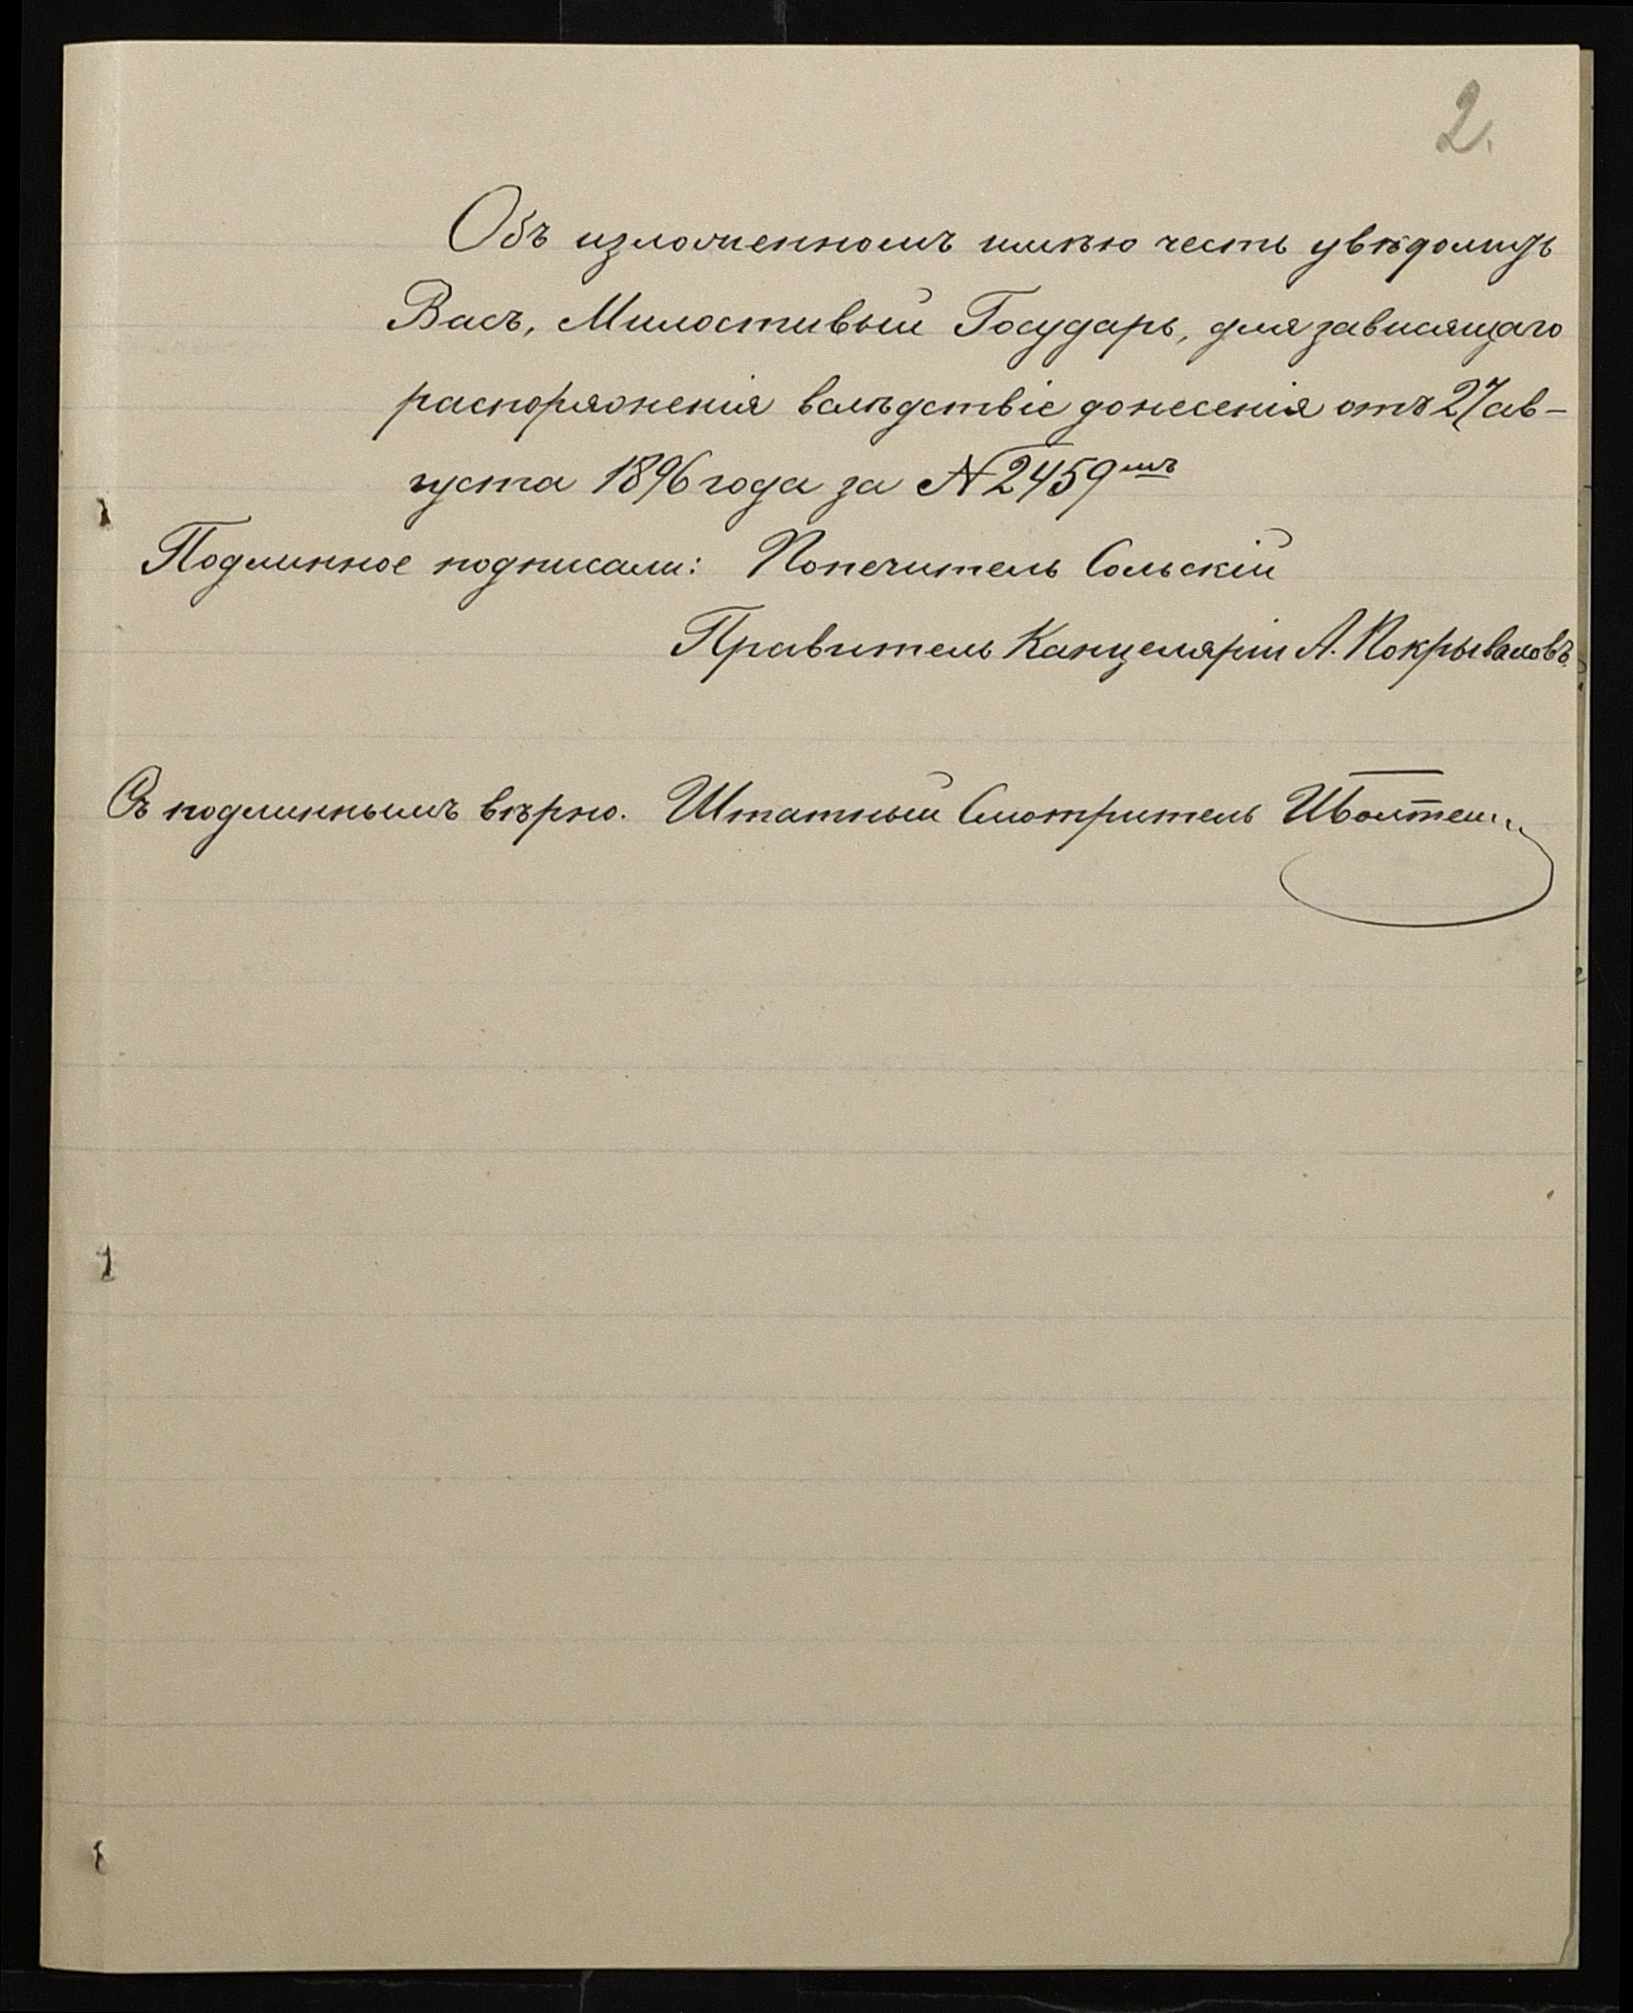 2.
Объ изложенномъ имѣю честь увѣдомить
Васъ, Милостивый Государь, для зависящаго
распоряженія вслѣдствіе донесенія отъ 27 ав-
густа 1896 года за № 2459мъ
Подлинное подписали: Попечитель Сольскій
Правитель Канцеляріи А. Покрываловъ.
Съ подлиннымъ вѣрно. Штатный Смотритель